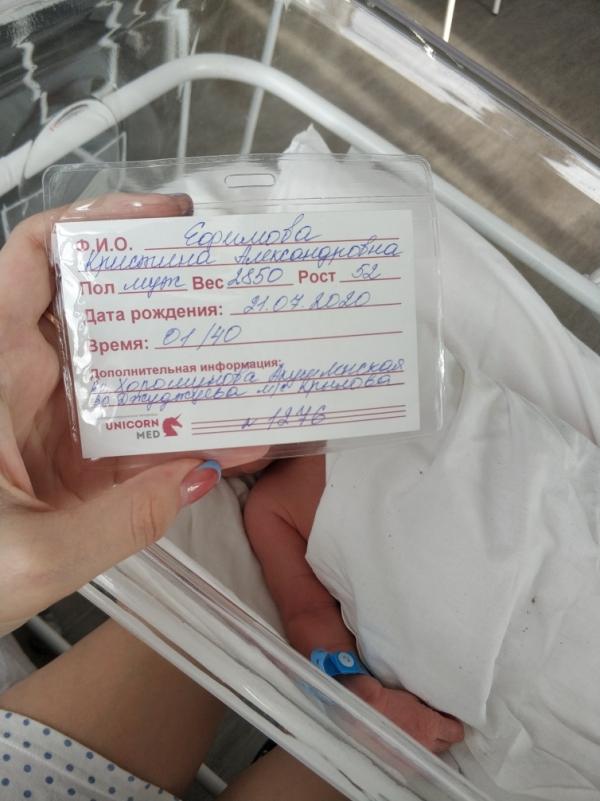 Ф.И.О. Ефимова
Кристина Александровна
Пол муж Вес 2850 Рост 52
Дата рождения: 21.07.2020
Время: 01/40
Дополнительная информация:
Хорошунова
Джуджуева м/с Крылова
UNICORN
MED
№ 1276